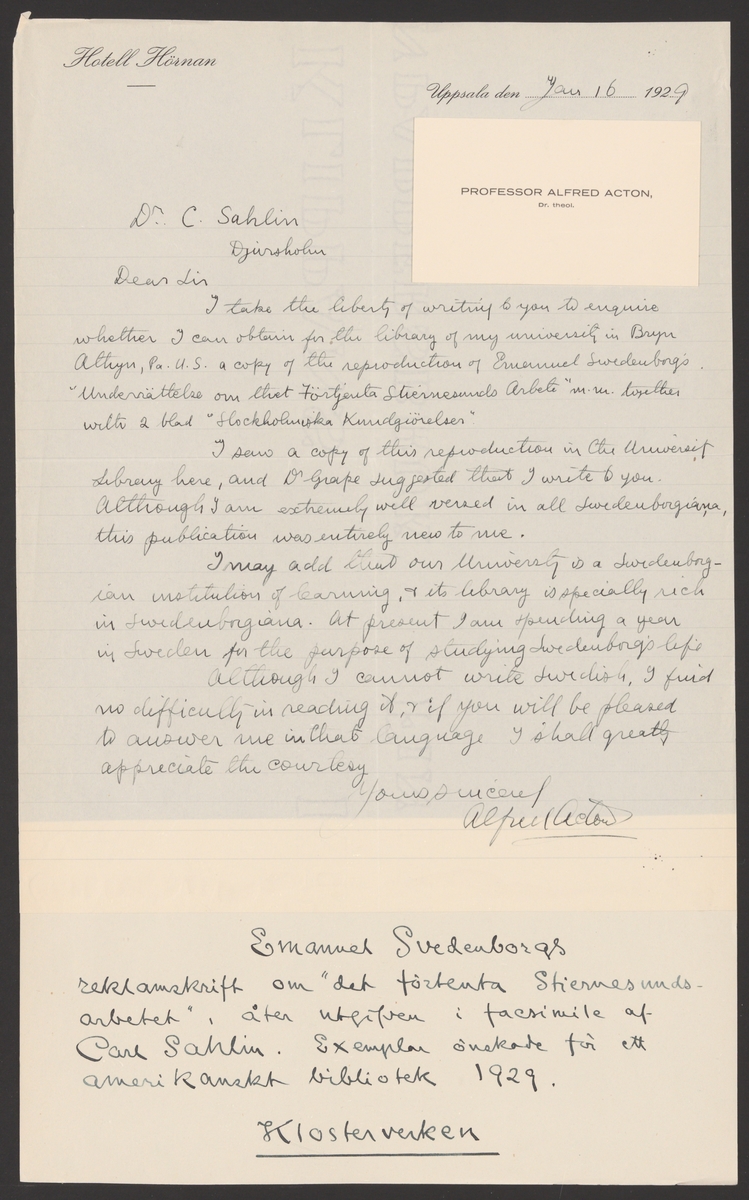 Hotell Hörnan
Uppsala den Jan 16 1929
PROFESSOR ALFRED ACTON,
Dr. theol.
Dr. C. Sahlin
Djursholm
Dear Sir
I take the liberty of writing to you to enquire
whether I can obtain for the library of my university in Bryn
Athyn, Pa. U.S. a copy of the reproduction of Emanuel Swedenborg's
"Underrättelse om thet Förtjenta Stiernesunds Arbete" m.m. together
with 2 blad "Stockholmiska Kundgiörelser"
I saw a copy of this reproduction in the University
Library here, and Dr Grape suggested that I write to you.
Although I am extremely well versed in all Swedenborgiana,
this publication was entirely new to me.
I may add that our University is a Swedenborg-
ian institution of learning, & its library is specially rich
in Swedenborgiana. At present I am spending a year
in Sweden for the purpose of studying Swedenborg's life
Although I cannot write Swedish, I find
no difficulty in reading it, & if you will be pleased
to answer me in that language I shall greatly
appreciate the courtesy
Yours sincerely
Alfred Acton
Emanuel Svedenborgs
reklamskrift om "det förtenta Stiernesunds-
arbetet", åter utgifven i facsimile af
Carl Sahlin. Exemplar önskade för ett
amerikanskt bibliotek 1929.
Klosterverken